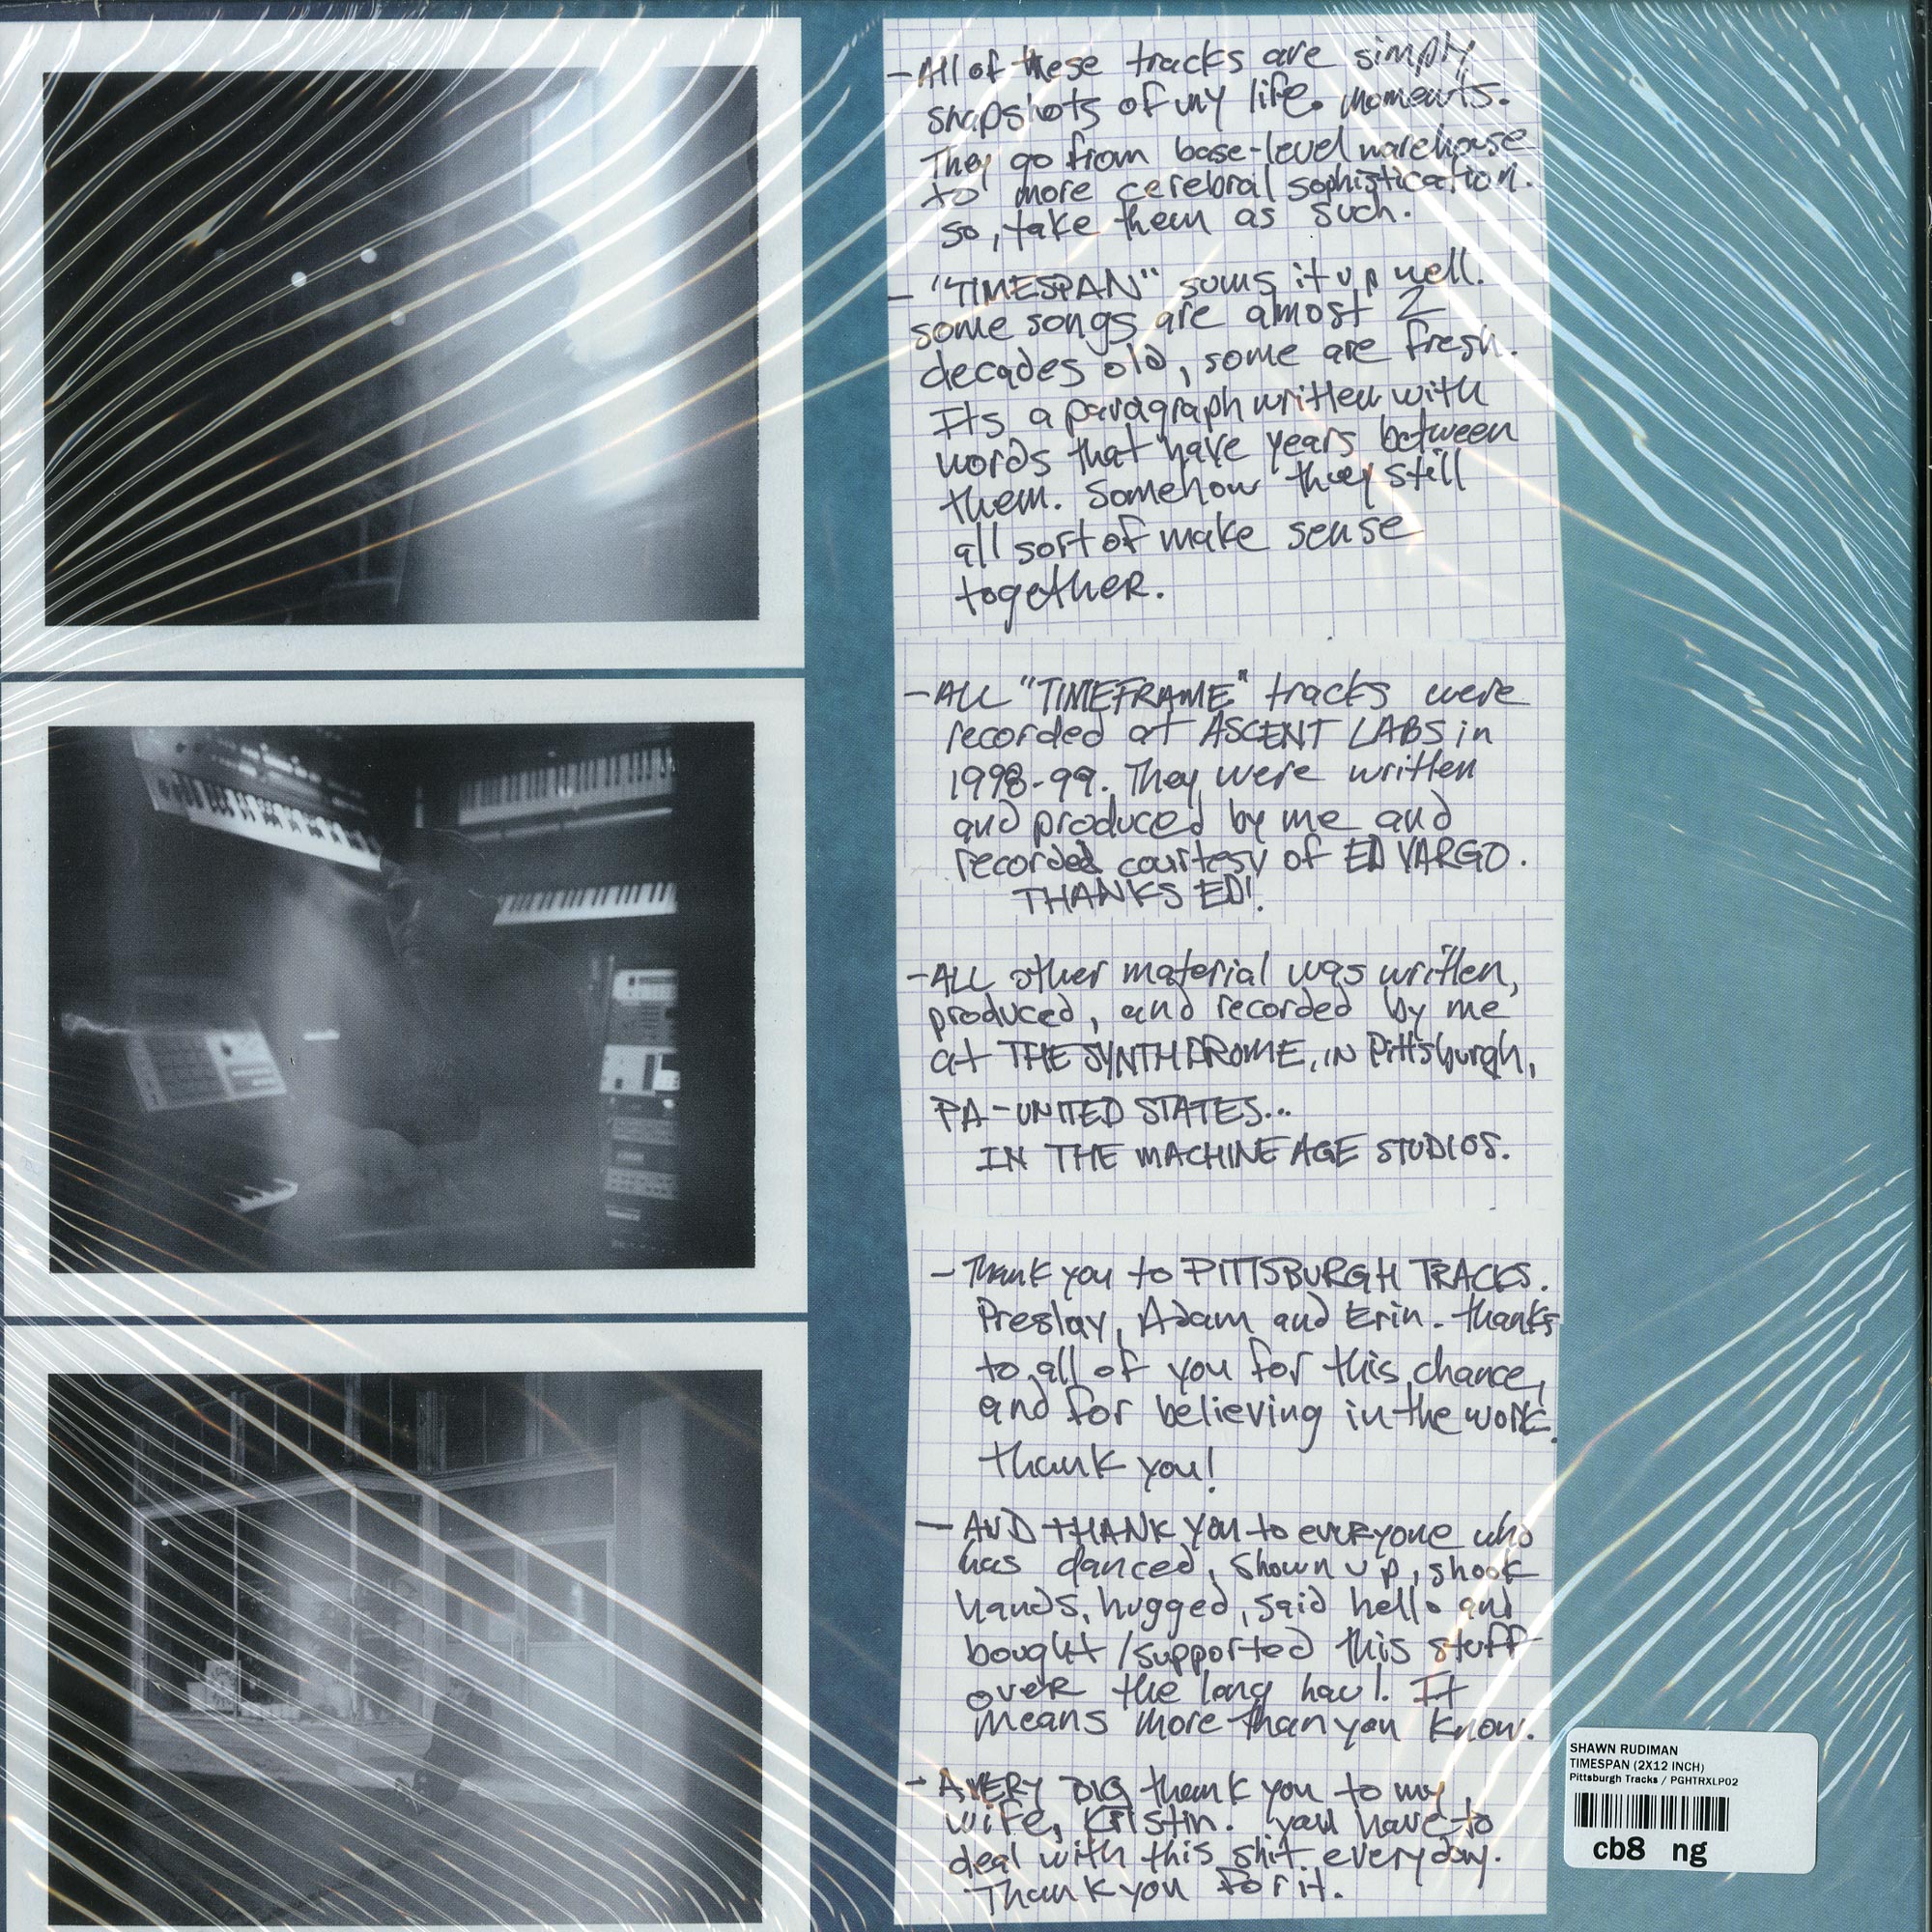 - All of these tracks are simply
snapshots of my life. moments.
They go from base-level warehouse
to more cerebral sophistication.
so, take them as such.
- "TIMESPAN" sums it up well.
some songs are almost 2
decades old, some are fresh.
Its a paragraph written with
words that have years between
them. Somehow they still
all sort of make sense
together.
- ALL "TIMEFRAME" tracks were
recorded at ASCENT LABS in
1998-99. They were written
and produced by me and
recorded courtesy of ED VARGO.
THANKS ED!
- ALL other material was written,
produced, and recorded by me
at THE SYNTHDROME, IN Pittsburgh,
PA - UNITED STATES...
IN THE MACHINE AGE STUDIOS.
- Thank you to PITTSBURGH TRACKS.
Preslay, Adam and Erin. thanks
to all of you for this chance,
and for believing in the work.
thank you!
- AND THANK YOU to everyone who
has danced, shown up, shook
hands, hugged, said hello and
bought/supported this stuff
over the long haul. It
means more than you know.
- A VERY BIG thank you to my
wife, Kristin. you have to
deal with this shit everyday.
Thank you for it.
SHAWN RUDIMAN
TIMESPAN (2X12 INCH)
Pittsburgh Tracks / PGHTRXLP02
cb8 ng